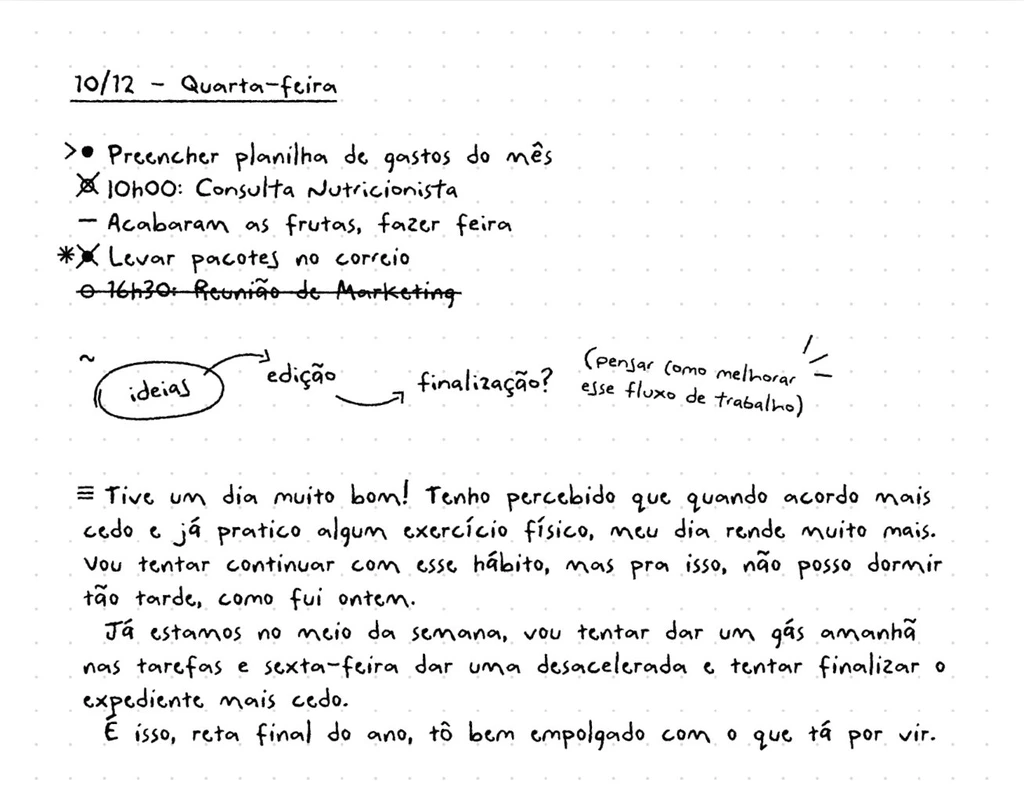 10/12 - Quarta-feira
>• Preencher planilha de gastos do mês
10h00: Consulta Nutricionista
- Acabaram as frutas, fazer feira
* Levar pacotes no correio
o 16h30: Reunião de Marketing
~
ideias
edição
finalização?
(pensar como melhorar
esse fluxo de trabalho)
≡ Tive um dia muito bom! Tenho percebido que quando acordo mais
cedo e já pratico algum exercício físico, meu dia rende muito mais.
Vou tentar continuar com esse hábito, mas pra isso, não posso dormir
tão tarde, como fui ontem.
Já estamos no meio da semana, vou tentar dar um gás amanhã
nas tarefas e sexta-feira dar uma desacelerada e tentar finalizar o
expediente mais cedo.
É isso, reta final do ano, tô bem empolgado com o que tá por vir.